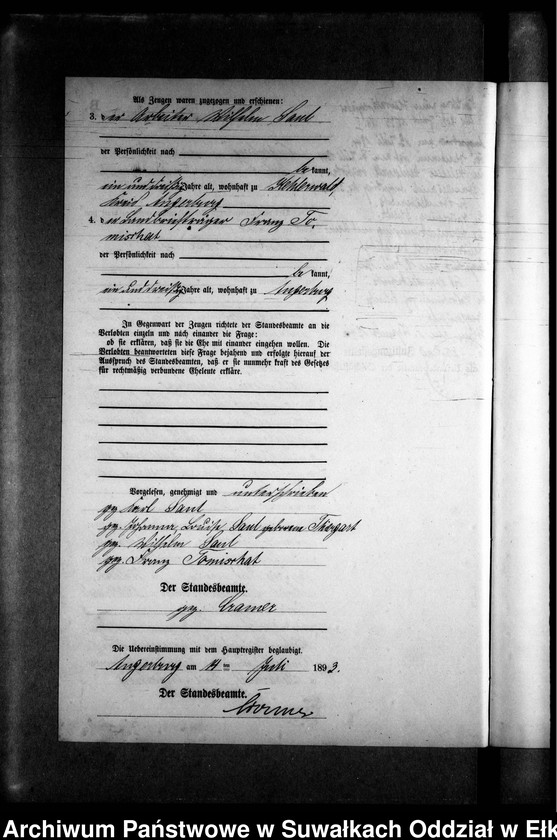 Als Zeugen waren zugezogen und erschienen:
3. der Arbeiter Wilhelm Saul
der Persönlichkeit nach
be kannt,
ein und dreißig Jahre alt, wohnhaft zu Kehlerwald,
Kreis Angerburg
4. der Landbriefträger Franz To-
mischat
der Persönlichkeit nach
be kannt,
ein und dreißig Jahre alt, wohnhaft zu Angerburg
In Gegenwart der Zeugen richtete der Standesbeamte an die
Verlobten einzeln und nach einander die Frage:
ob sie erklären, daß sie die Ehe mit einander eingehen wollen. Die
Verlobten beantworteten diese Frage bejahend und erfolgte hierauf der
Ausspruch des Standesbeamten, daß er sie nunmehr kraft des Gesetzes
für rechtmäßig verbundene Eheleute erkläre.
Vorgelesen, genehmigt und unterschrieben
gez. Karl Saul
gez. Johanna Louise Saul geborene
gez. Wilhelm Saul
gez. Franz Tomischat
Der Standesbeamte.
gez. Cramer
Die Uebereinstimmung mit dem Hauptregister beglaubigt.
Angerburg am ten Juli 1893.
Der Standesbeamte.
Cramer
Archiwum Państwowe w Suwałkach Oddział w Ełk